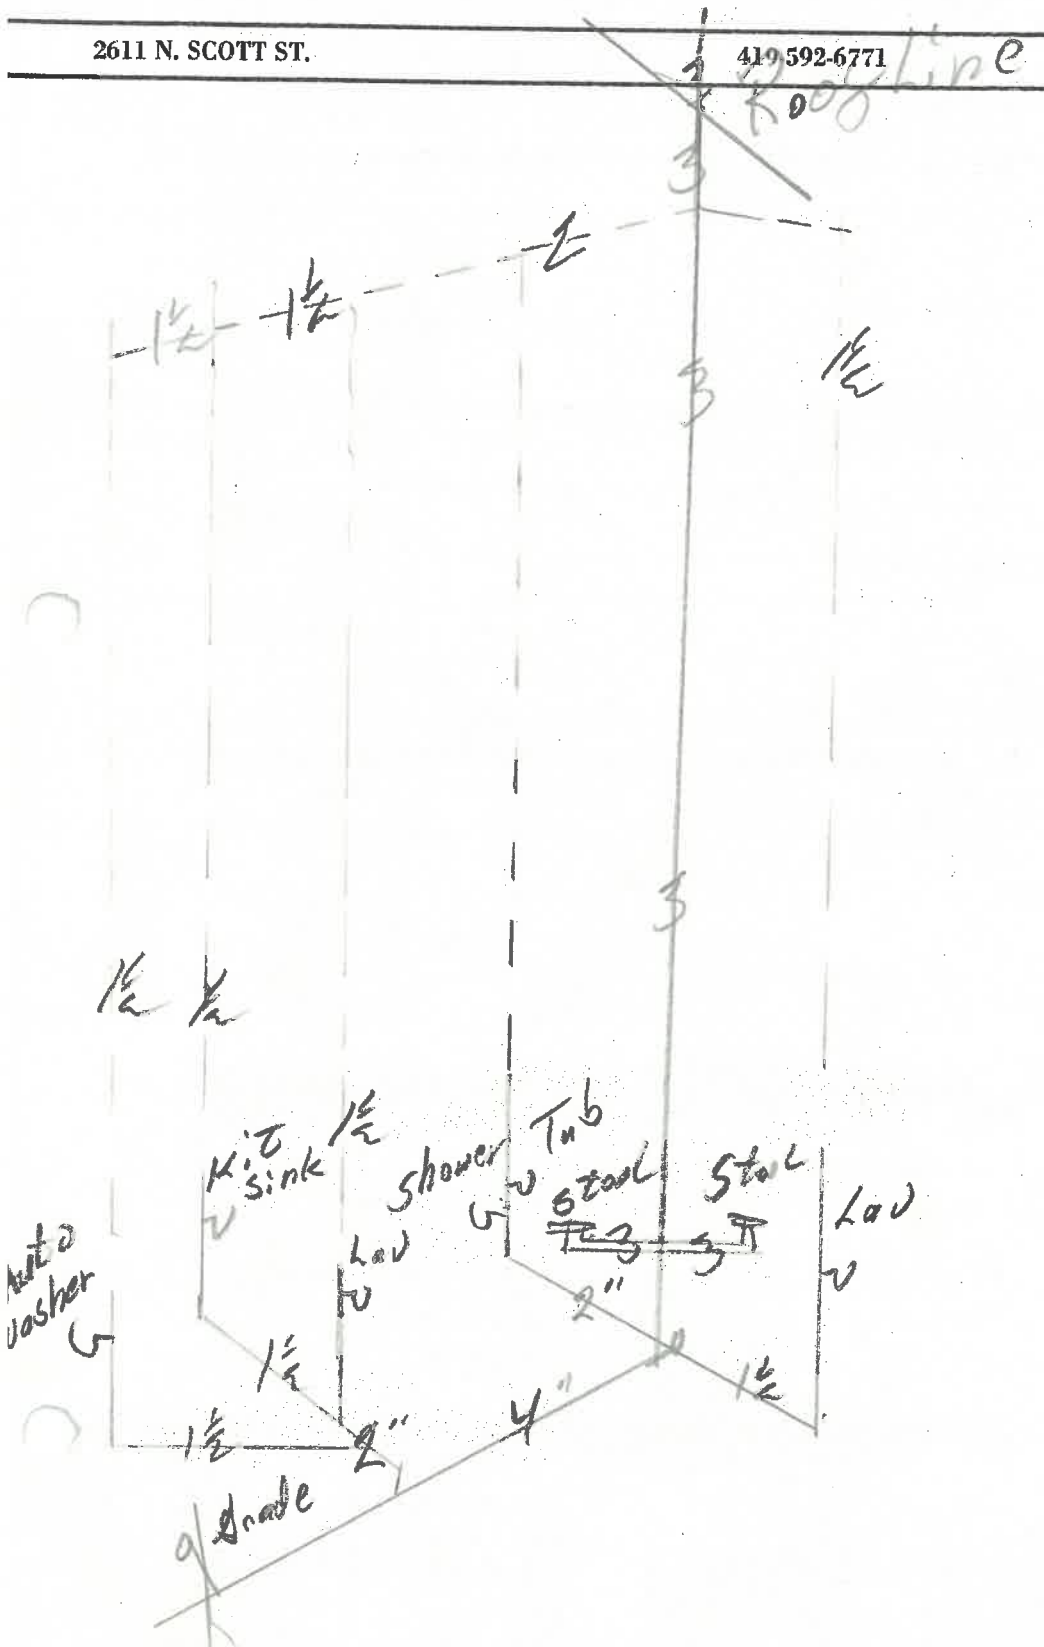 2611 N. SCOTT ST. 419-592-6771
Roofline
3
2
1½ 1½
3
1½
3
1½ ½
Kit 1½
sink
shower Tub
stool Stool
Lav
Lav
3 3
Auto
washer
2"
1½
1½
4"
1½ 2"
Grade